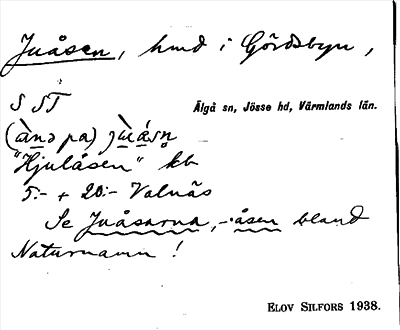 Juåsen, hmd i Gördsbyn,
S ST
Älgå sn, Jösse hd, Värmlands län.
(ànə pa) jùásn̥
"Hjulåsen" kb
5:- + 20:- Valnäs
Se Juåsarna, -åsen bland
Naturnamn!
ELOV SILFORS 1938.